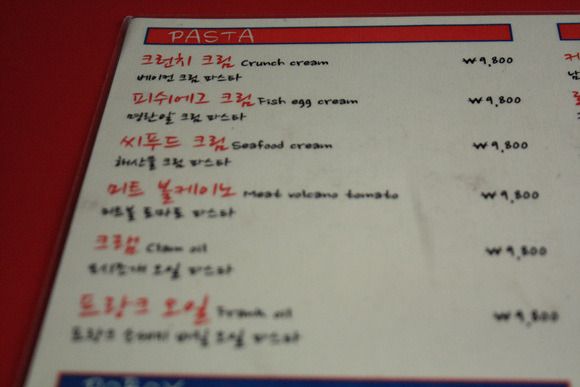 PASTA
크런치 크림 Crunch cream ₩9,800
베이컨 크림 파스타
피쉬에그 크림 Fish egg cream ₩9,800
명란알 크림 파스타
씨푸드 크림 Seafood cream ₩9,800
해산물 크림 파스타
미트 볼케이노 Meat volcano tomato ₩9,800
미트볼 토마토 파스타
크램 Clam oil ₩9,800
모시조개 오일 파스타
프랑크 오일 Frank oil ₩9,800
프랑크 소세지 오일 파스타